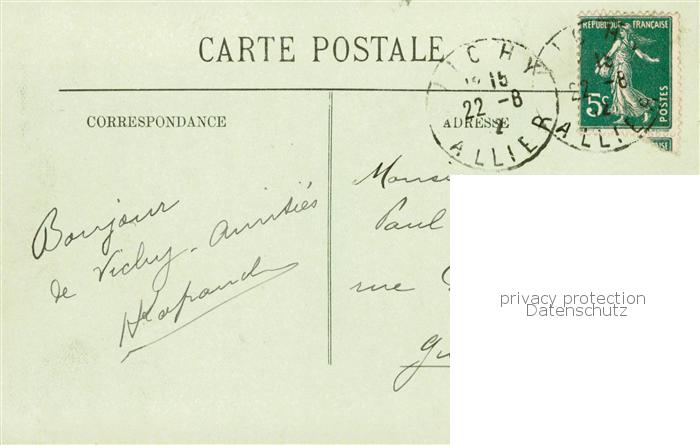 CARTE POSTALE
CORRESPONDANCE
ADRESSE
VICHY
14 15
22 - 8
ALLIER
RÉPUBLIQUE FRANÇAISE
5c
POSTES
Bonjour
de Vichy. Amitiés
Paul
rue
privacy protection
Datenschutz